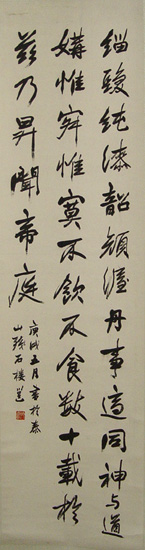 緇駿純漆韶顏渥丹事適同神与道
媾惟寂惟寞不飲不食數十載於
茲乃昇聞帝庭
庚戌五月書於泰
山 石樓